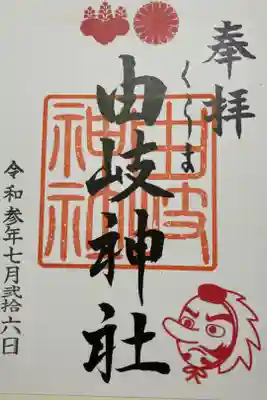 奉拝
くらま
由岐神社
由岐神社
令和参年七月弐拾六日